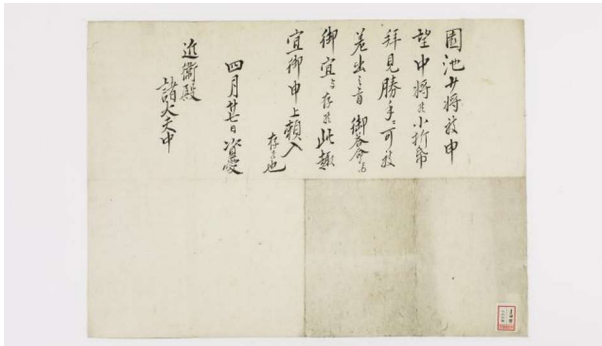 園池少将被申
望中将候小折紙
拝見勝手ニ可被
差出之旨御答命候
御宜与存候此趣
宜御申上頼入
存候也
四月廿七日
近衛殿
諸大夫中